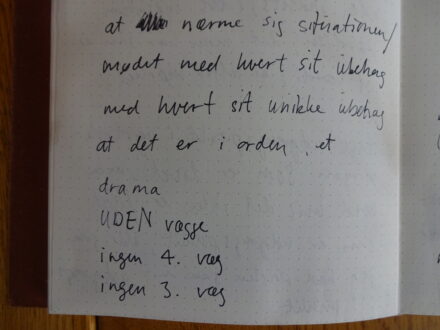 at nærme sig situationen/
mødet med hvert sit ubehag
med hvert sit unikke ubehag
at det er i orden, et
drama
UDEN vægge
ingen 4. væg
ingen 3. væg